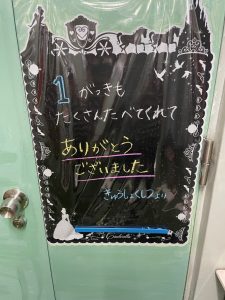 1がっきも
たくさんたべてくれて
ありがとう
ございました
きゅうしょくしつより
Cinderella